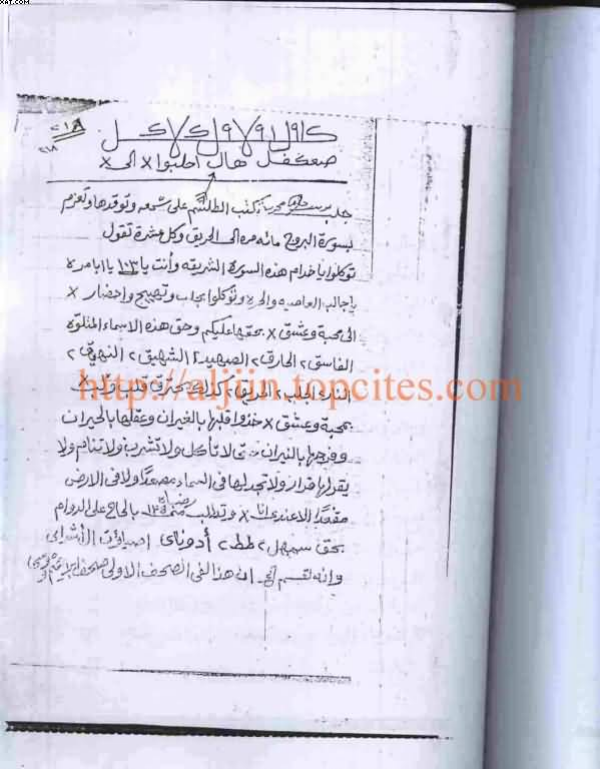 XAT.COM
٢١٨
صعكفل هال اجلبوا x الى x
جلب يكتب الطلسم على شمعه وتوقدها وتعزم
بسورة البروج مائه مره الى الحريق وكل عشرة تقول
توكلوا يا خدام هذه السورة الشريفه وأنت يا ١٠٣ يا ابا مرة
يا جالب العاصيه والحره وتوكلوا بجلب وتهييج واحضار x
الى محبة وعشق x بحقها عليكم وحق هذه الاسماء المتلوة
الفاسق ٢ الحارق ٢ الصهيد ٢ الشهيق ٢ النهيق ٢
http://aljiin.topcites.com
كذلك يحترق قلب
بمحبة وعشق x خذوا قلبها بالغيران وعقلها بالحيران
وفرجها بالنيران حتى لا تأكل ولا تشرب ولا تنام ولا
يقر لها قرار ولا تجد لها في السماء مصعدا ولا في الارض
مقعدا الا عندي انا x وتطلب منه بالحاح على الدوام
بحق سمهل ٢ طط ٢ أدوناي اصباؤت آل شداي
وانه لقسم الخ ان هذا لفي الصحف الاولى صحف ابراهيم وموسى